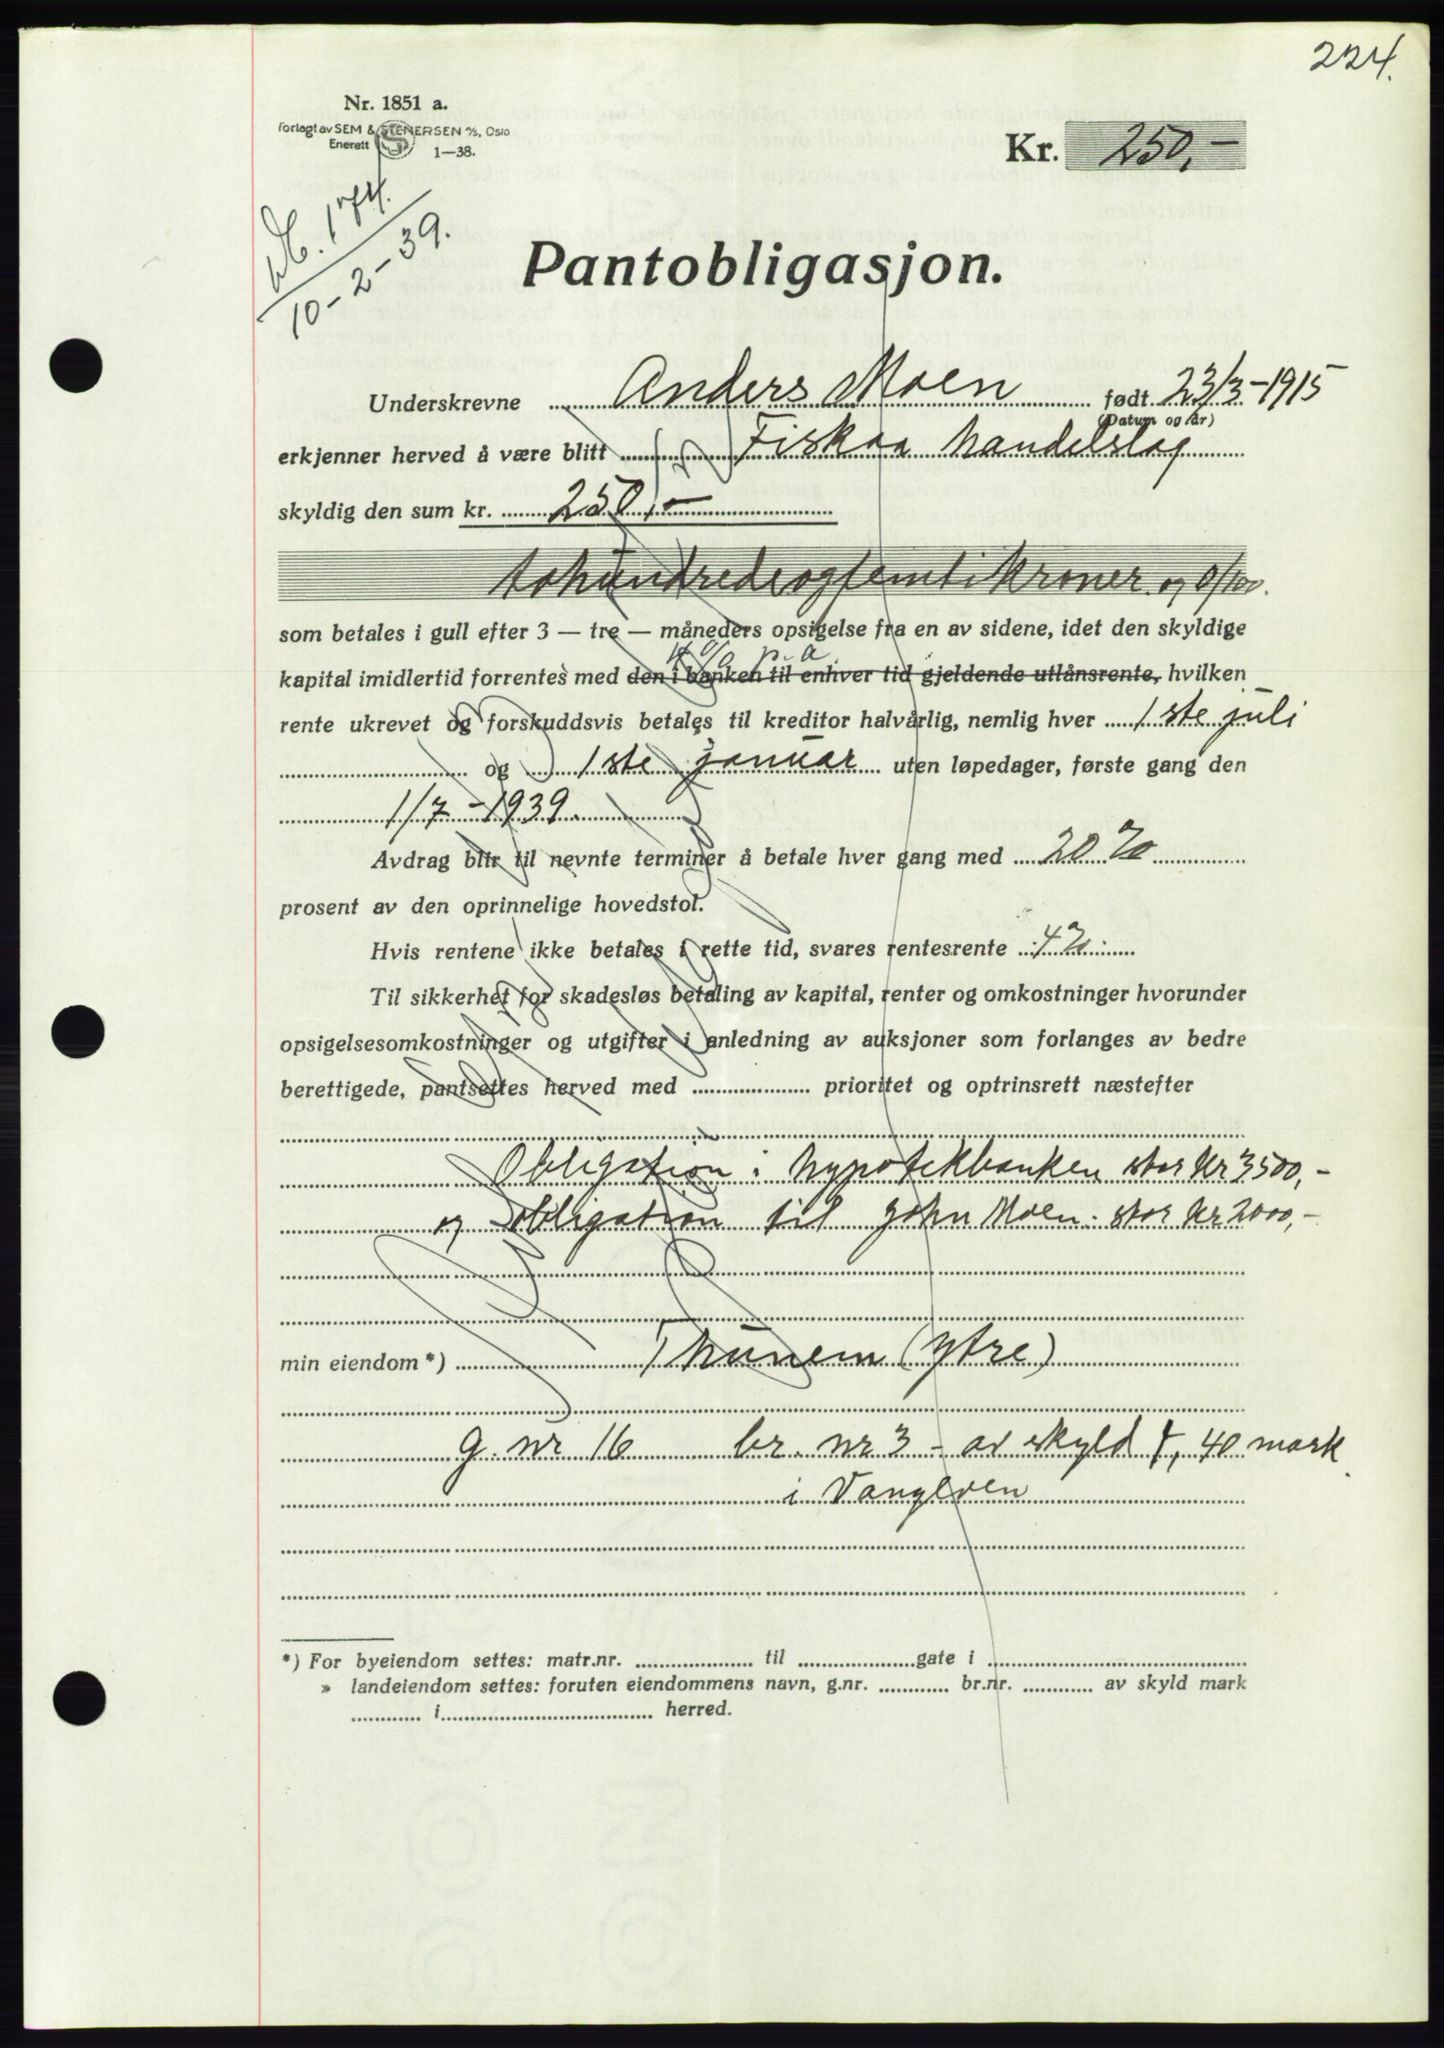 224.
Nr. 1851 a.
Forlagt av SEM & STENERSEN A/S, Oslo
Enerett
1—38.
Kr. 250,-
174.
10-2-39.
Pantobligasjon.
Underskrevne Anders Moen født 23/3-1915
(Datum og år)
erkjenner herved å være blitt Fiskaa Handelslag
skyldig den sum kr. 250,-
tohundredeogfemti kroner og 0/100.
som betales i gull efter 3 — tre — måneders opsigelse fra en av sidene, idet den skyldige
4 % p.a
kapital imidlertid forrentes med den i banken til enhver tid gjeldende utlånsrente, hvilken
rente ukrevet og forskuddsvis betales til kreditor halvårlig, nemlig hver 1ste juli
og 1ste januar uten løpedager, første gang den
1/7-1939.
Avdrag blir til nevnte terminer å betale hver gang med 20 %
prosent av den oprinnelige hovedstol.
Hvis rentene ikke betales i rette tid, svares rentesrente 4%
Til sikkerhet for skadesløs betaling av kapital, renter og omkostninger hvorunder
opsigelsesomkostninger og utgifter i anledning av auksjoner som forlanges av bedre
berettigede, pantsettes herved med prioritet og optrinsrett næstefter
Obligation i Hypotekbanken stor kr 3500,-
og obligation til John Moen. stor kr 2000,-
min eiendom *) Thunem (ytre)
g. nr 16 br. nr 3 - av skyld 1,40 mark.
i Vangløen
*) For byeiendom settes: matr.nr. til gate i
» landeiendom settes: foruten eiendommens navn, g.nr. br.nr. av skyld mark
i herred.